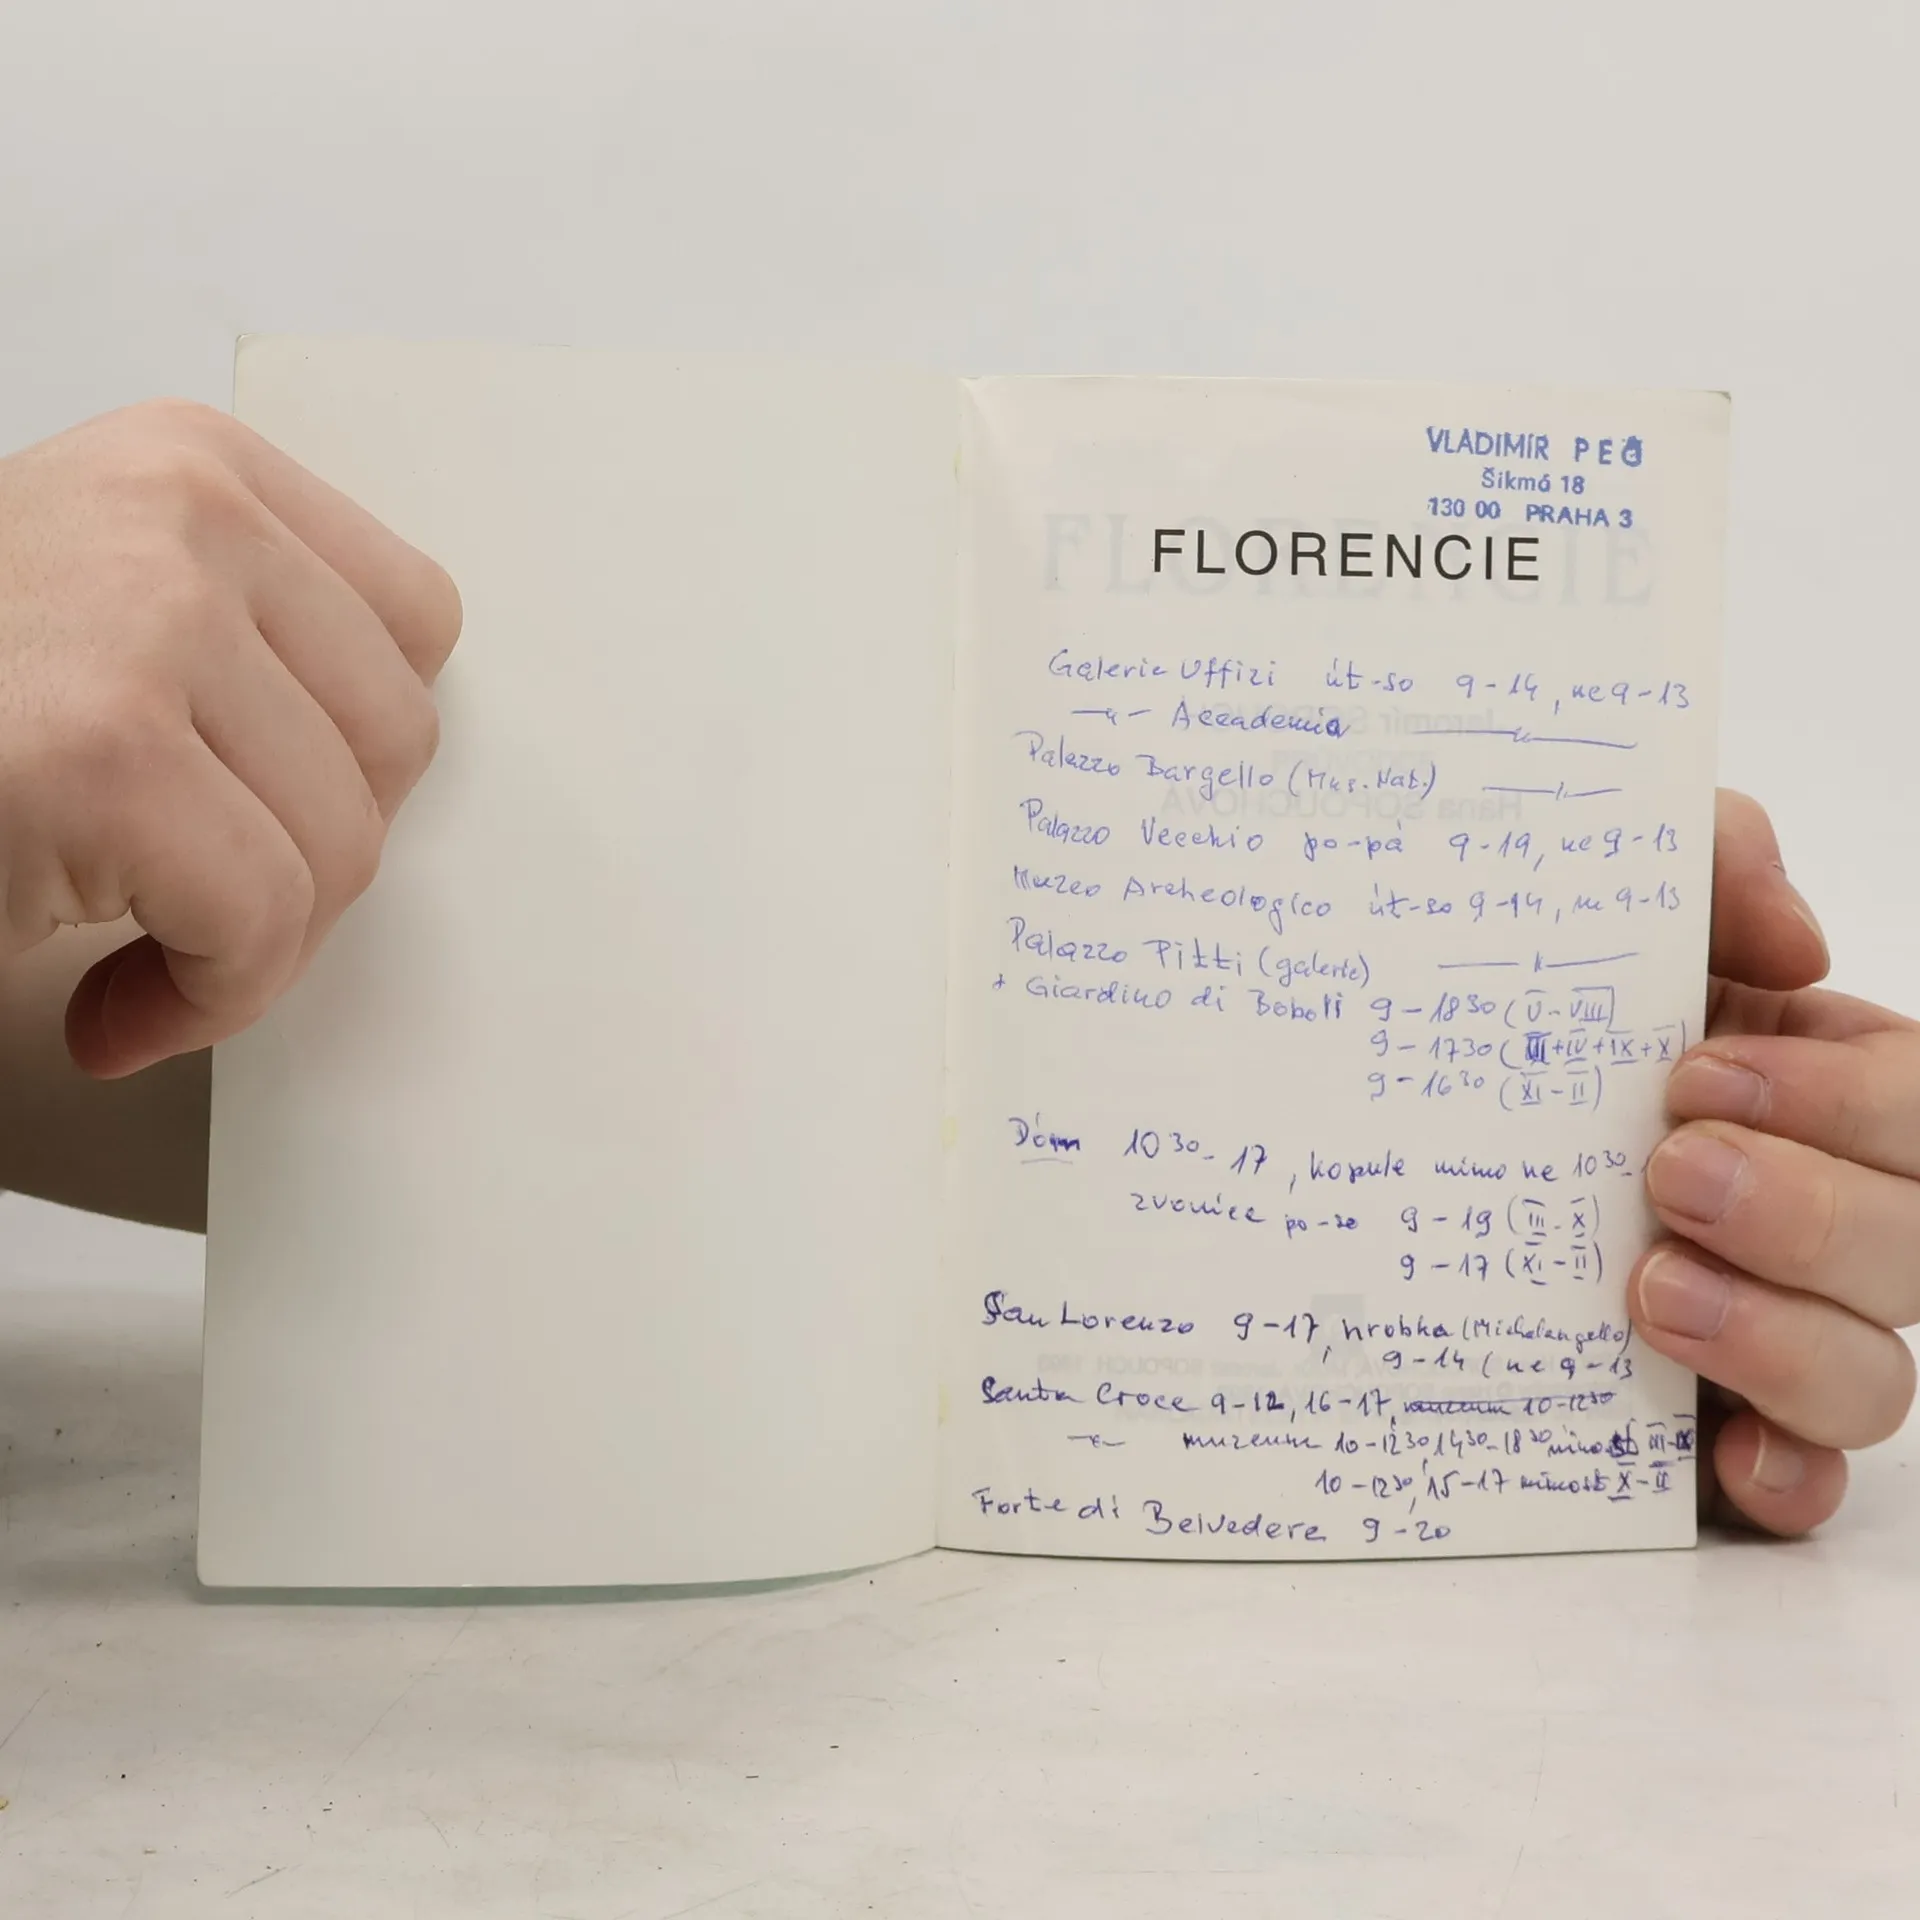 VLADIMÍR PEČ
Šikmá 18
130 00 PRAHA 3
FLORENCIE
Galerie Uffizi út-so 9-14, ne 9-13
—〃— Accademia —〃—
Palazzo Bargello (Mus. Nat.) —〃—
Palazzo Vecchio po-pá 9-19, ne 9-13
Muzeo Archeologico út-so 9-14, ne 9-13
Palazzo Pitti (galerie) —〃—
+ Giardino di Boboli 9-18 30 (V-VIII)
9-17 30 (III+IV+IX+X)
9-16 30 (XI-II)
Dóm 10 30-17, kopule mimo ne 10 30-
zvonice po-so 9-19 (III-X)
9-17 (XI-II)
San Lorenzo 9-17, hrobka (Michelangello)
9-14 (ne 9-13
Santa Croce 9-12, 16-17, muzeum 10-12 30
—〃— muzeum 10-12 30, 14 30-18 30 mimo st III-IX
10-12 30, 15-17 mimo st X-II
Forte di Belvedere 9-20